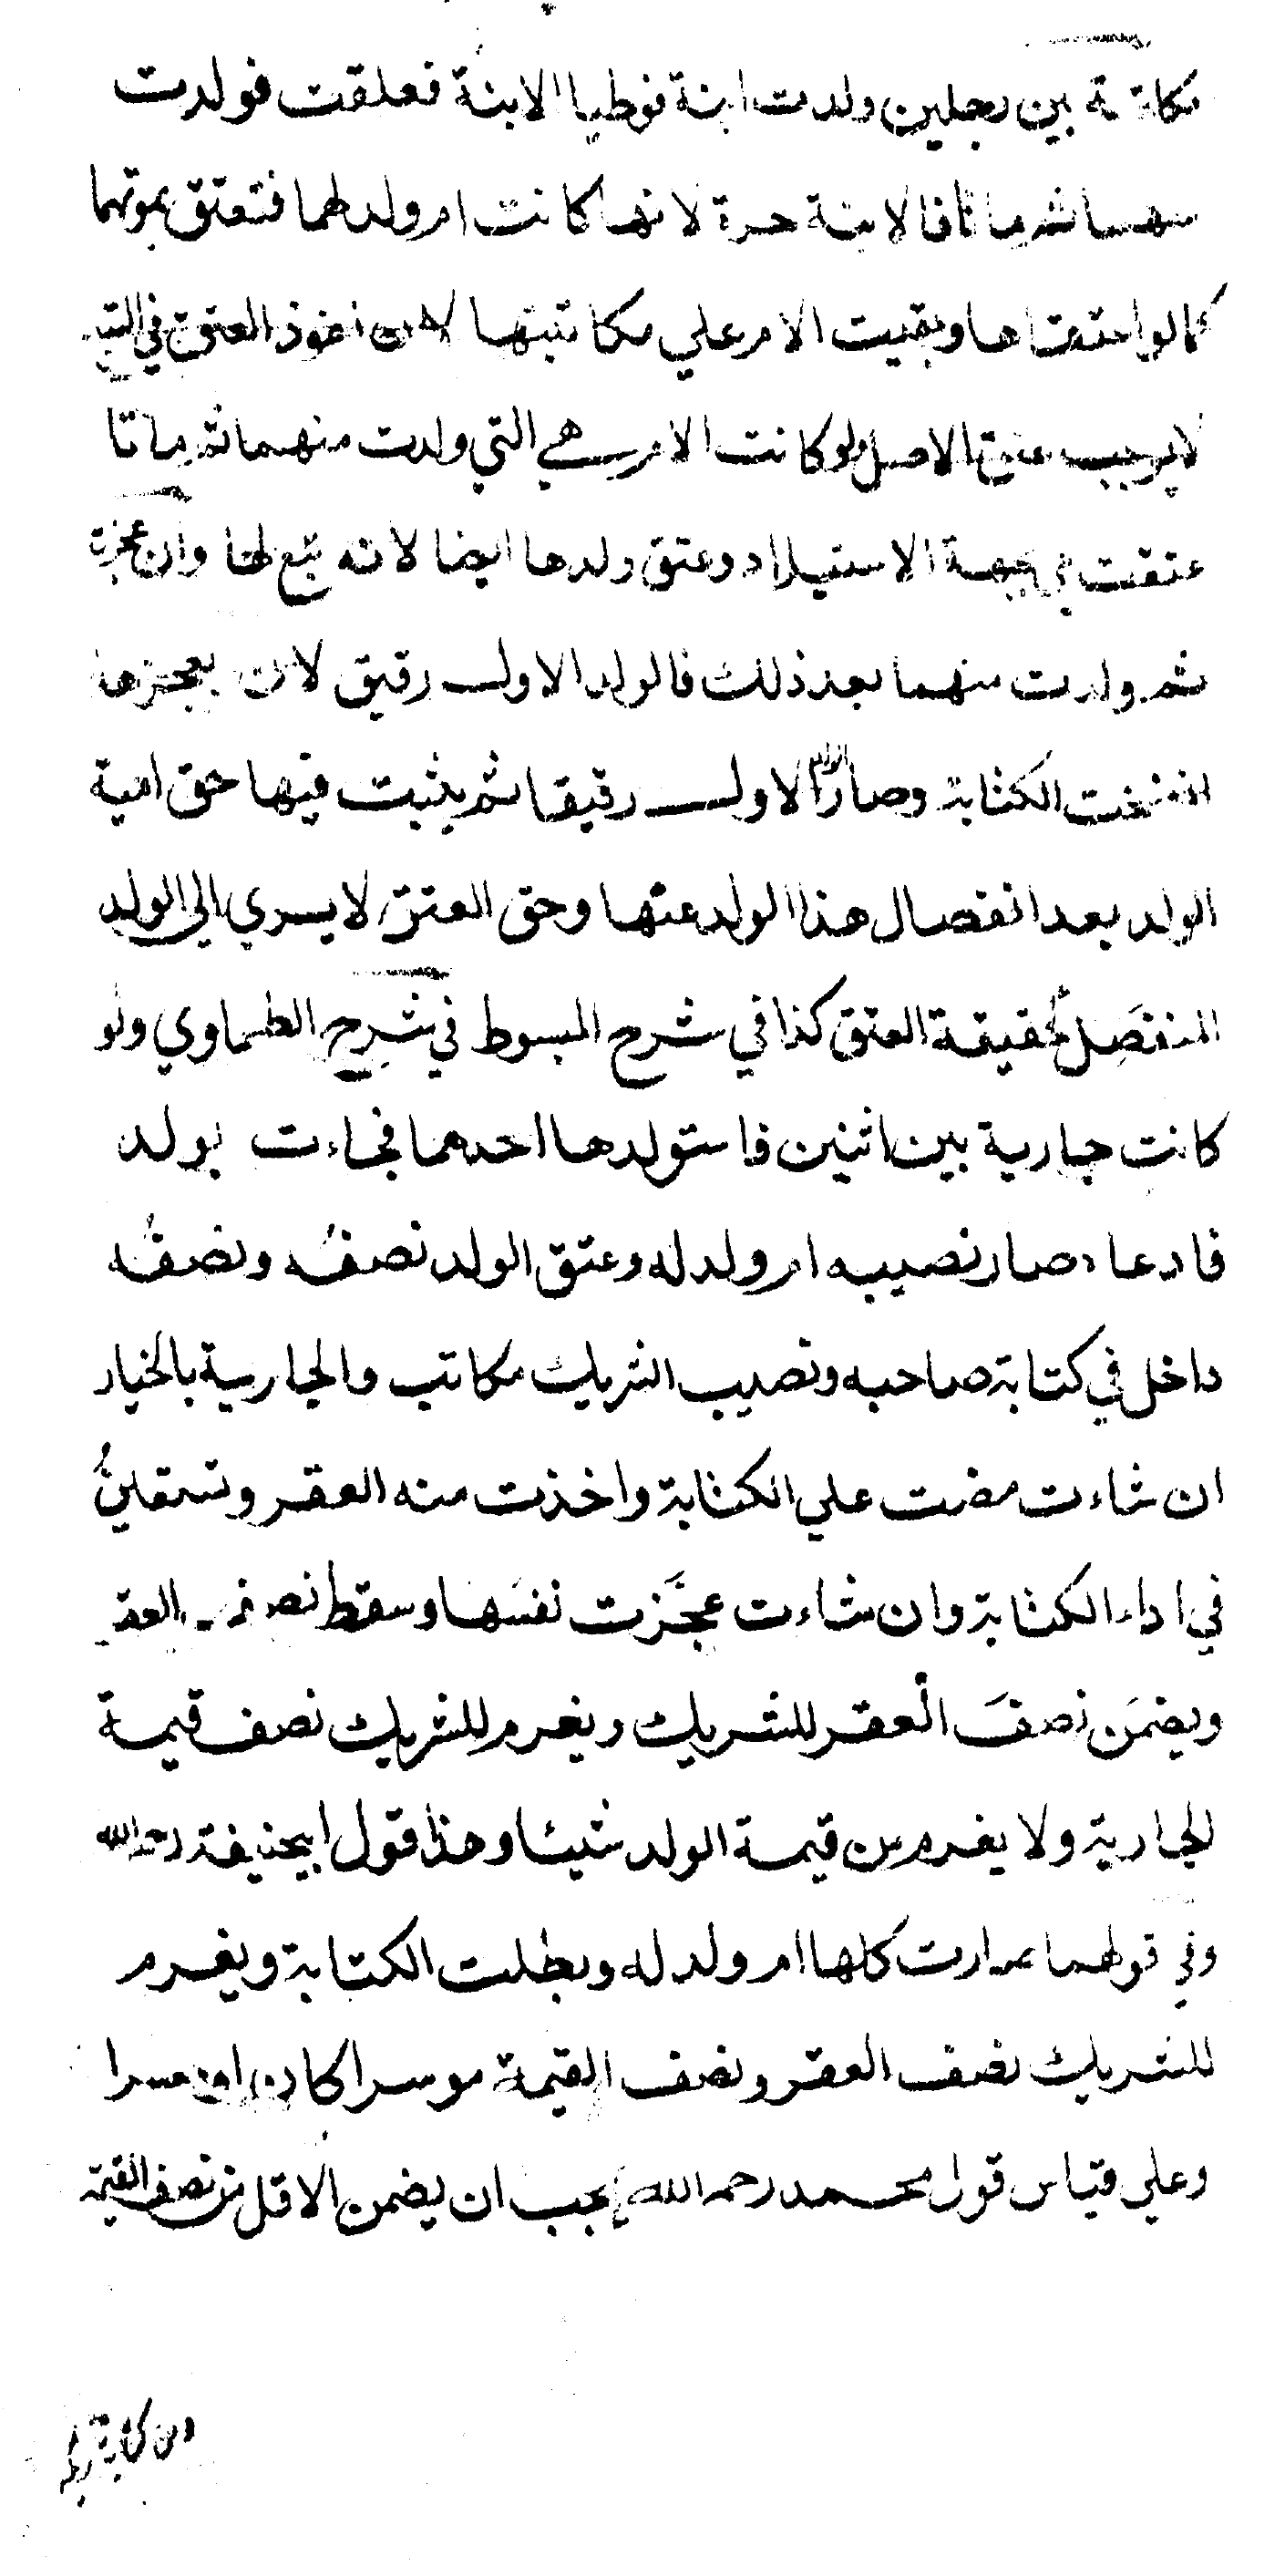 مكاتبة بين رجلين ولدت ابنة فوطيا الابنة فعلقت فولدت
منهما ثم ماتا فالابنة حرة لانها كانت ام ولد لهما فتعتق بموتهما
كما لو اعتقاها وبقيت الام علي مكاتبتها لان نفوذ العتق في التبع
لا يوجب عتق الاصل ولو كانت الام هي التي ولدت منهما ثم ماتا
عتقت بجهة الاستيلاد وعتق ولدها ايضا لانه تبع لها وان عجزت
ثم ولدت منهما بعد ذلك فالولد الاول رقيق لان بعجزها
انفسخت الكتابة وصار الولد الاول رقيقا ثم يثبت فيها حق امية
الولد بعد انفصال هذا الولد عنها وحق العتق لا يسري الي الولد
المنفصَل كحقيقة العتق كذا في شرح المبسوط في شرح الطحاوي ولو
كانت جارية بين اثنين فاستولدها احدهما فجاءت بولد
فادعاه صار نصيبه ام ولد له وعتق الولد نصفُه ونصفُه
داخل في كتابة صاحبه ونصيب الشريك مكاتب والجارية بالخيار
ان شاءت مضت علي الكتابة واخذت منه العقر وتستعين
في اداء الكتابة وان شاءت عجَّزت نفسَها وسقط نصف العقر
ويضمَن نصفَ العقر للشريك ويغرم للشريك نصف قيمة
الجارية ولا يغرم من قيمة الولد شيئا وهذا قول ابي حنيفة رحمه الله
وفي قولهما صارت كلها ام ولد له وبطلت الكتابة ويغرم
للشريك نصف العقر ونصف القيمة موسرا كان او معسرا
وعلي قياس قول محمد رحمه الله يجب ان يضمن الاقل من نصف القيمة
ومن كتابة